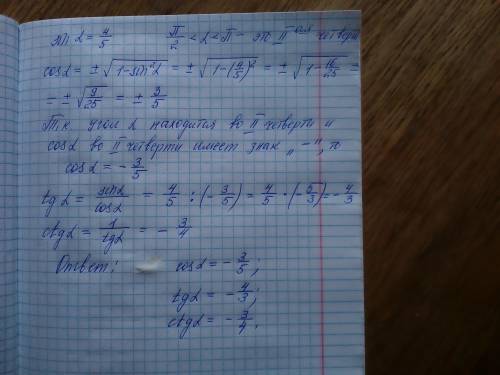 sin α = 4/5   π/2 < α < π – это II ая четверть
cos α = ± √(1 – sin² α) = ± √(1 – (4/5)²) = ± √(1 – 16/25) =
= ± √(9/25) = ± 3/5
Т.к угол α находится во II четверти и
cos α во II четверти имеет знак „–", то
cos α = – 3/5
tg α = sin α / cos α = 4/5 : (– 3/5) = 4/5 · (– 5/3) = – 4/3
ctg α = 1 / tg α = – 3/4
Ответ: cos α = – 3/5 ;
tg α = – 4/3 ;
ctg α = – 3/4 .